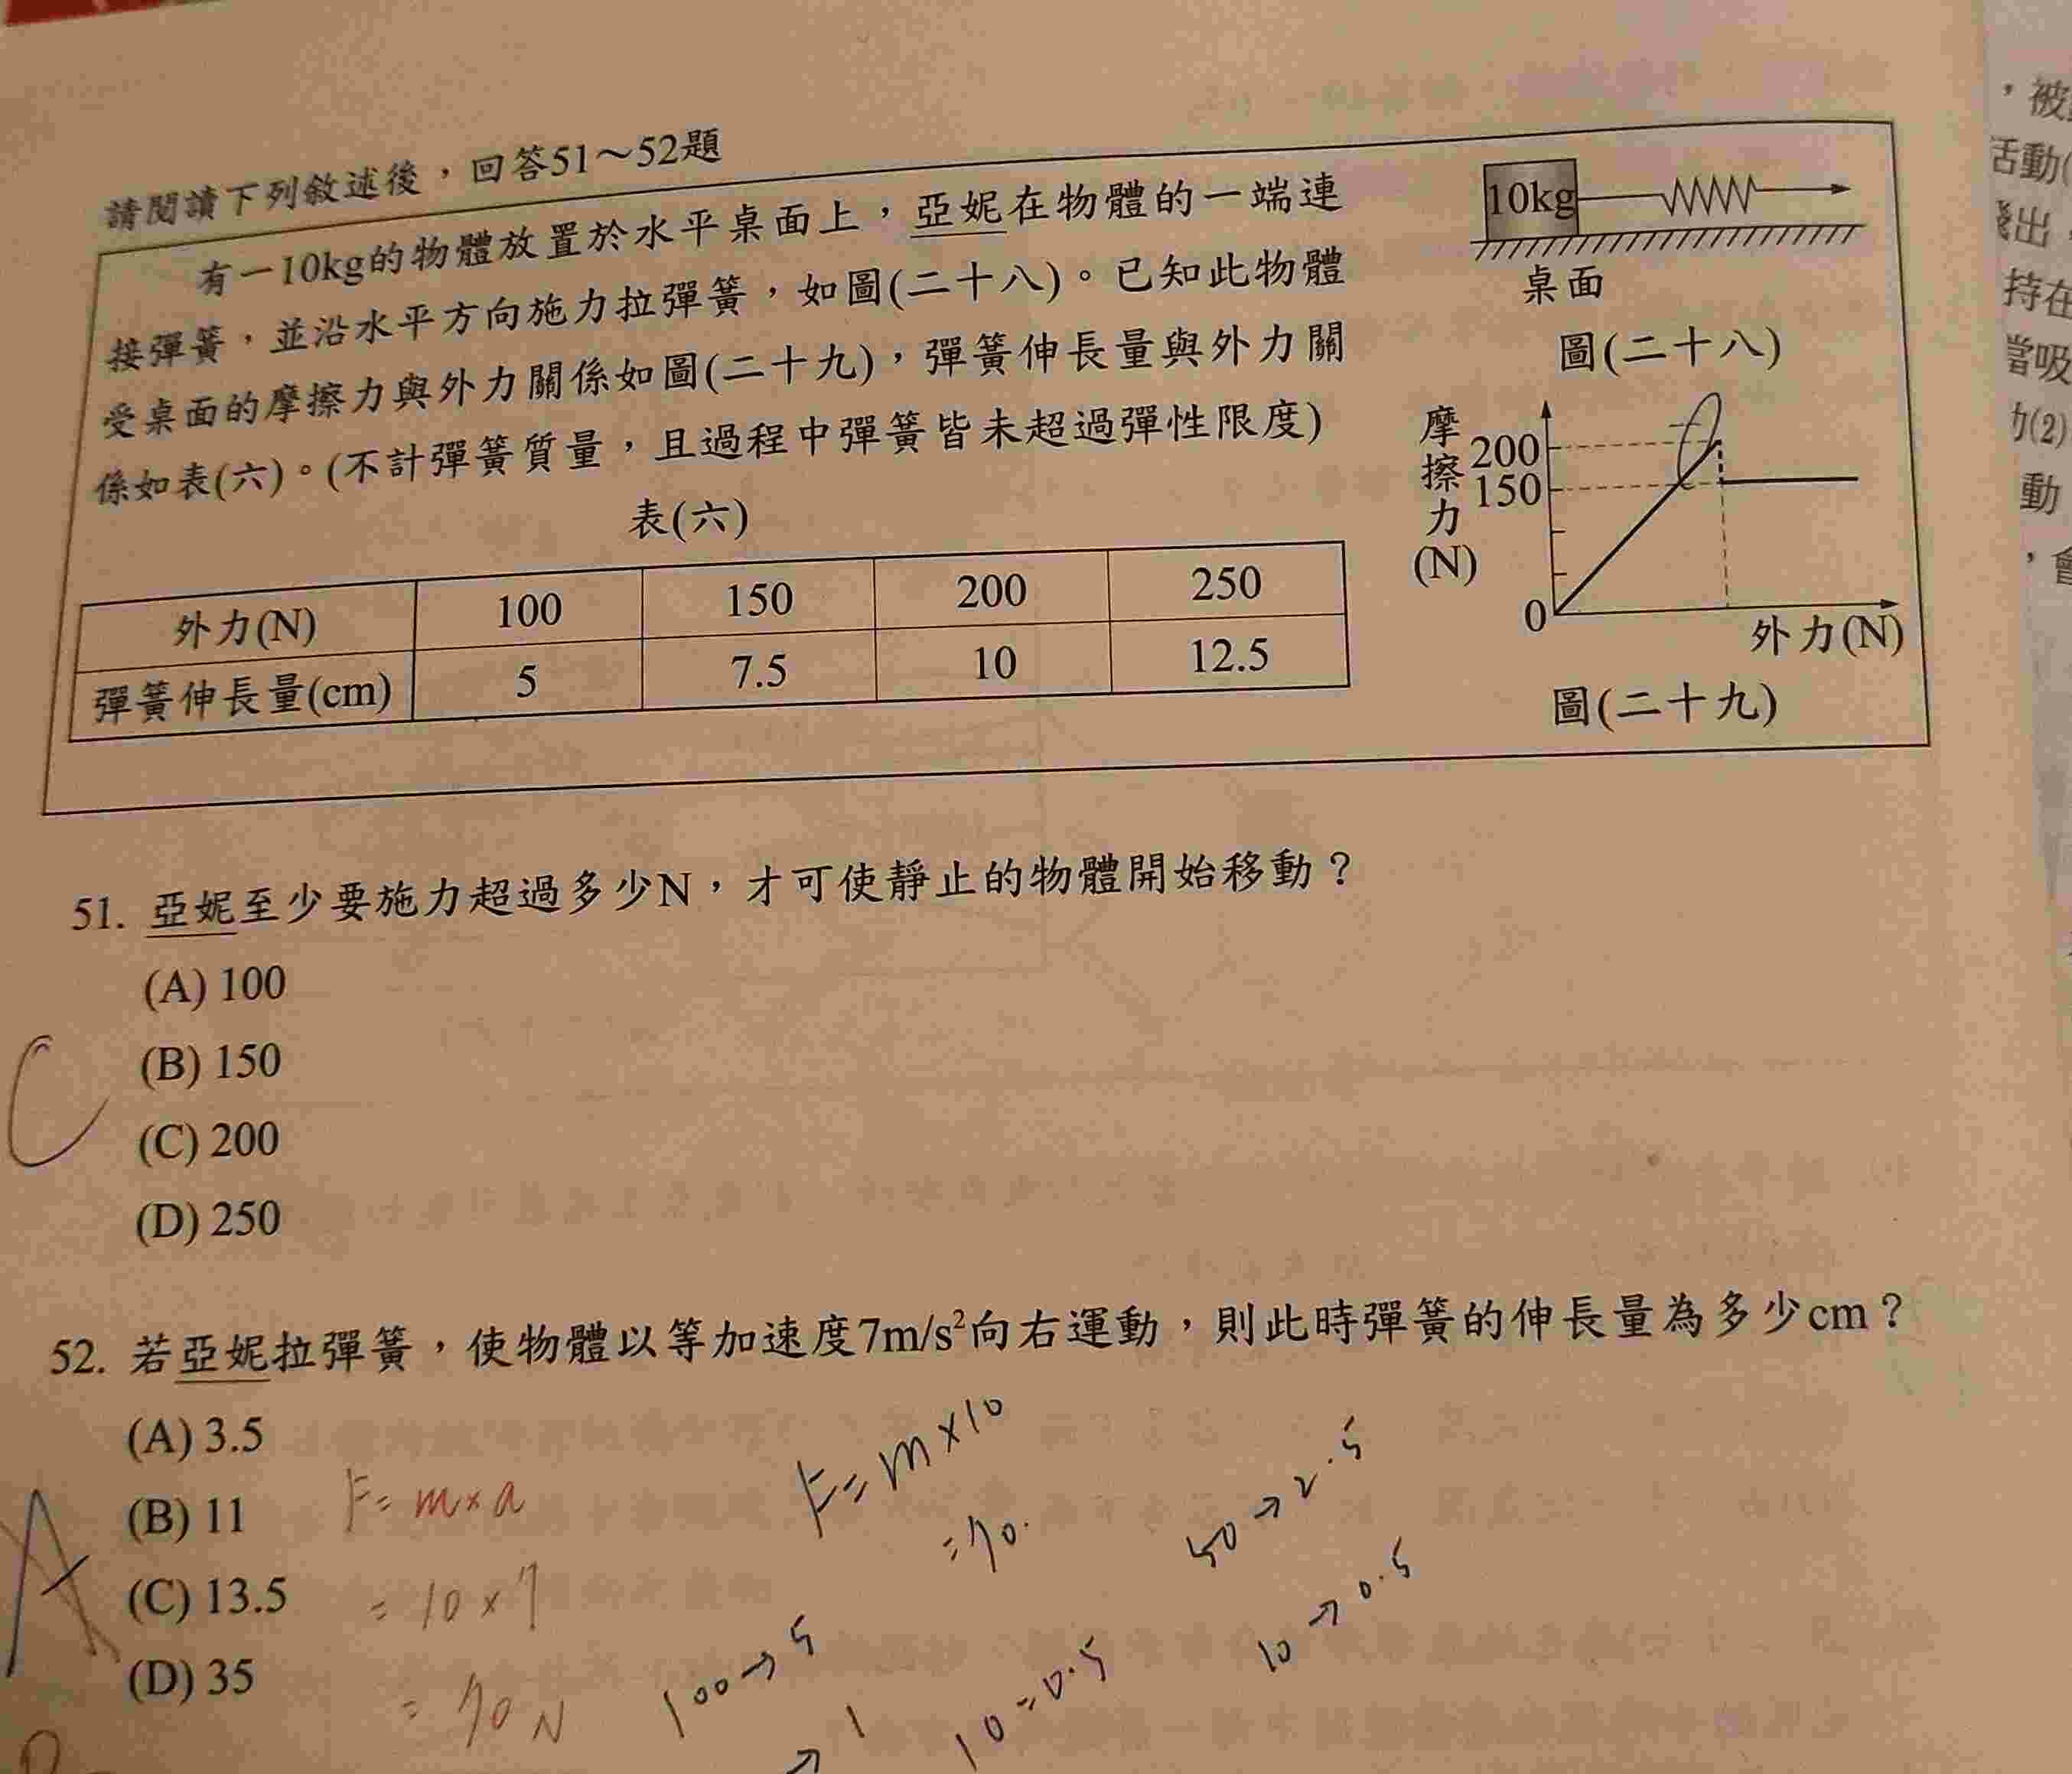 請閱讀下列敘述後，回答51～52題
有一10kg的物體放置於水平桌面上，亞妮在物體的一端連
接彈簧，並沿水平方向施力拉彈簧，如圖(二十八)。已知此物體
受桌面的摩擦力與外力關係如圖(二十九)，彈簧伸長量與外力關
係如表(六)。(不計彈簧質量，且過程中彈簧皆未超過彈性限度)
表(六)
外力(N) 100 150 200 250
彈簧伸長量(cm) 5 7.5 10 12.5
10kg
桌面
圖(二十八)
摩擦力(N)
200
150
0
外力(N)
圖(二十九)
51. 亞妮至少要施力超過多少N，才可使靜止的物體開始移動？
(A) 100
(B) 150
(C) 200
(D) 250
C
52. 若亞妮拉彈簧，使物體以等加速度7m/s²向右運動，則此時彈簧的伸長量為多少cm？
(A) 3.5
(B) 11
(C) 13.5
(D) 35
A
F= m×a
= 10×7
= 70N
F= m×10
=70.
50→2.5
10→0.5
100→5
→1
10=0.5
，被
活動(
出，
持在
當吸
力(2)
動
，會